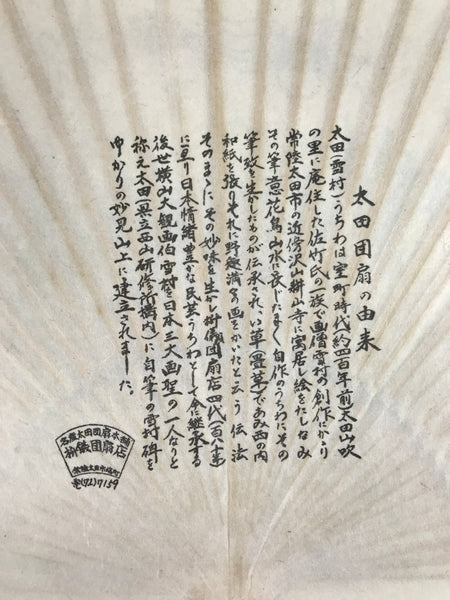 太田団扇の由来
太田(雪村)うちわは室町時代(約四百年前太田山吹
の里に庵住した佐竹氏の一族で画僧雪村の創作にかゝり
常陸太田市の近傍沢山耕山寺に寓居し絵をたしなみ
その筆意花鳥山水に長じたまく自作のうちわにその
筆致を生かしたものが伝承され、い草(畳草)であみ西の内
和紙を張りそれに野趣満々の画をかいたと云う伝法
そのまゝにその妙味を生かし枡儀団扇店四代(百八十年)
に亘り日本情緒豊かな民芸うちわとして今に継承する
後世横山大観画伯雪村を日本三大画聖の一人なりと
称え太田(県立西山研修所構内)に自筆の雪村碑を
ゆかりの妙見山上に建立されました。
名産太田団扇本舗
枡儀団扇店
常陸太田市
☎(72)7159